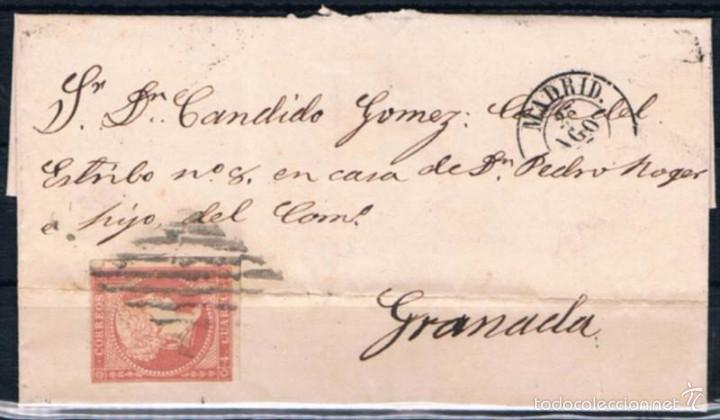 Sr. Dn. Candido Gomez. Calle del
Estribo no. 8. en casa de Dn. Pedro Roger
e hijo, del Como.
Granada
MADRID.
AGO
CORREOS
4 CUA
todocoleccion.net